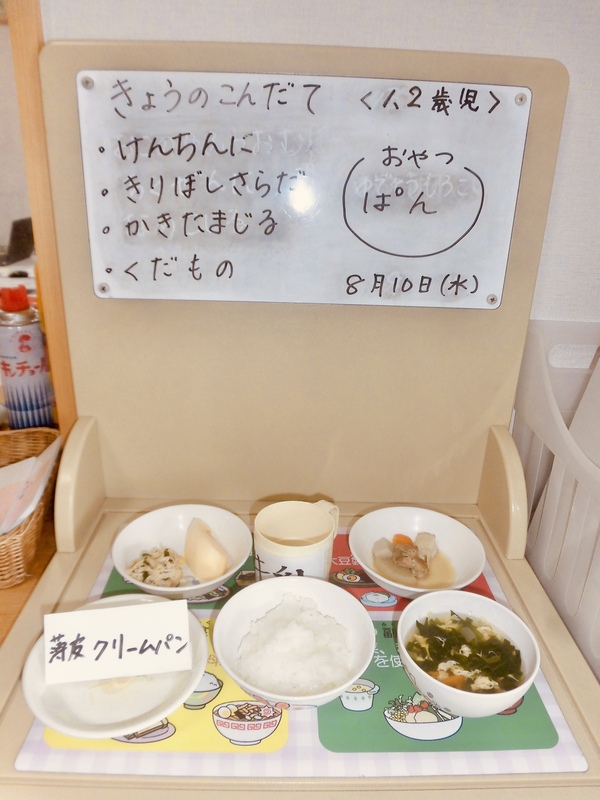 きょうのこんだて
<1、2歳児>
・けんちんに
・きりぼしさらだ
・かきたまじる
・くだもの
おやつ
ぱん
8月10日(水)
キンチョール
クリームパン
を使